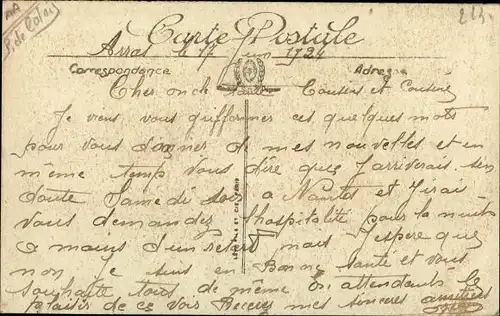 P. de Calais
Carte Postale
Arras le 17 Juin 1924
Correspondance Adresse
Cher oncle Tante Cousins et Cousine
Je viens vous griffonner ces quelques mots
pour vous donner de mes nouvelles et en
même temp vous dire que J'arriverais sen
doute Samedi soir a Nantes et J'irai
vous demander l'hospitalité pour la nuit
a moins d'un retard mais J'espere que
non Je suis en Bonne santé et vous
souhaite tous de même En attendant le
plaisir de ce voir Recevez mes sinceres amitiés